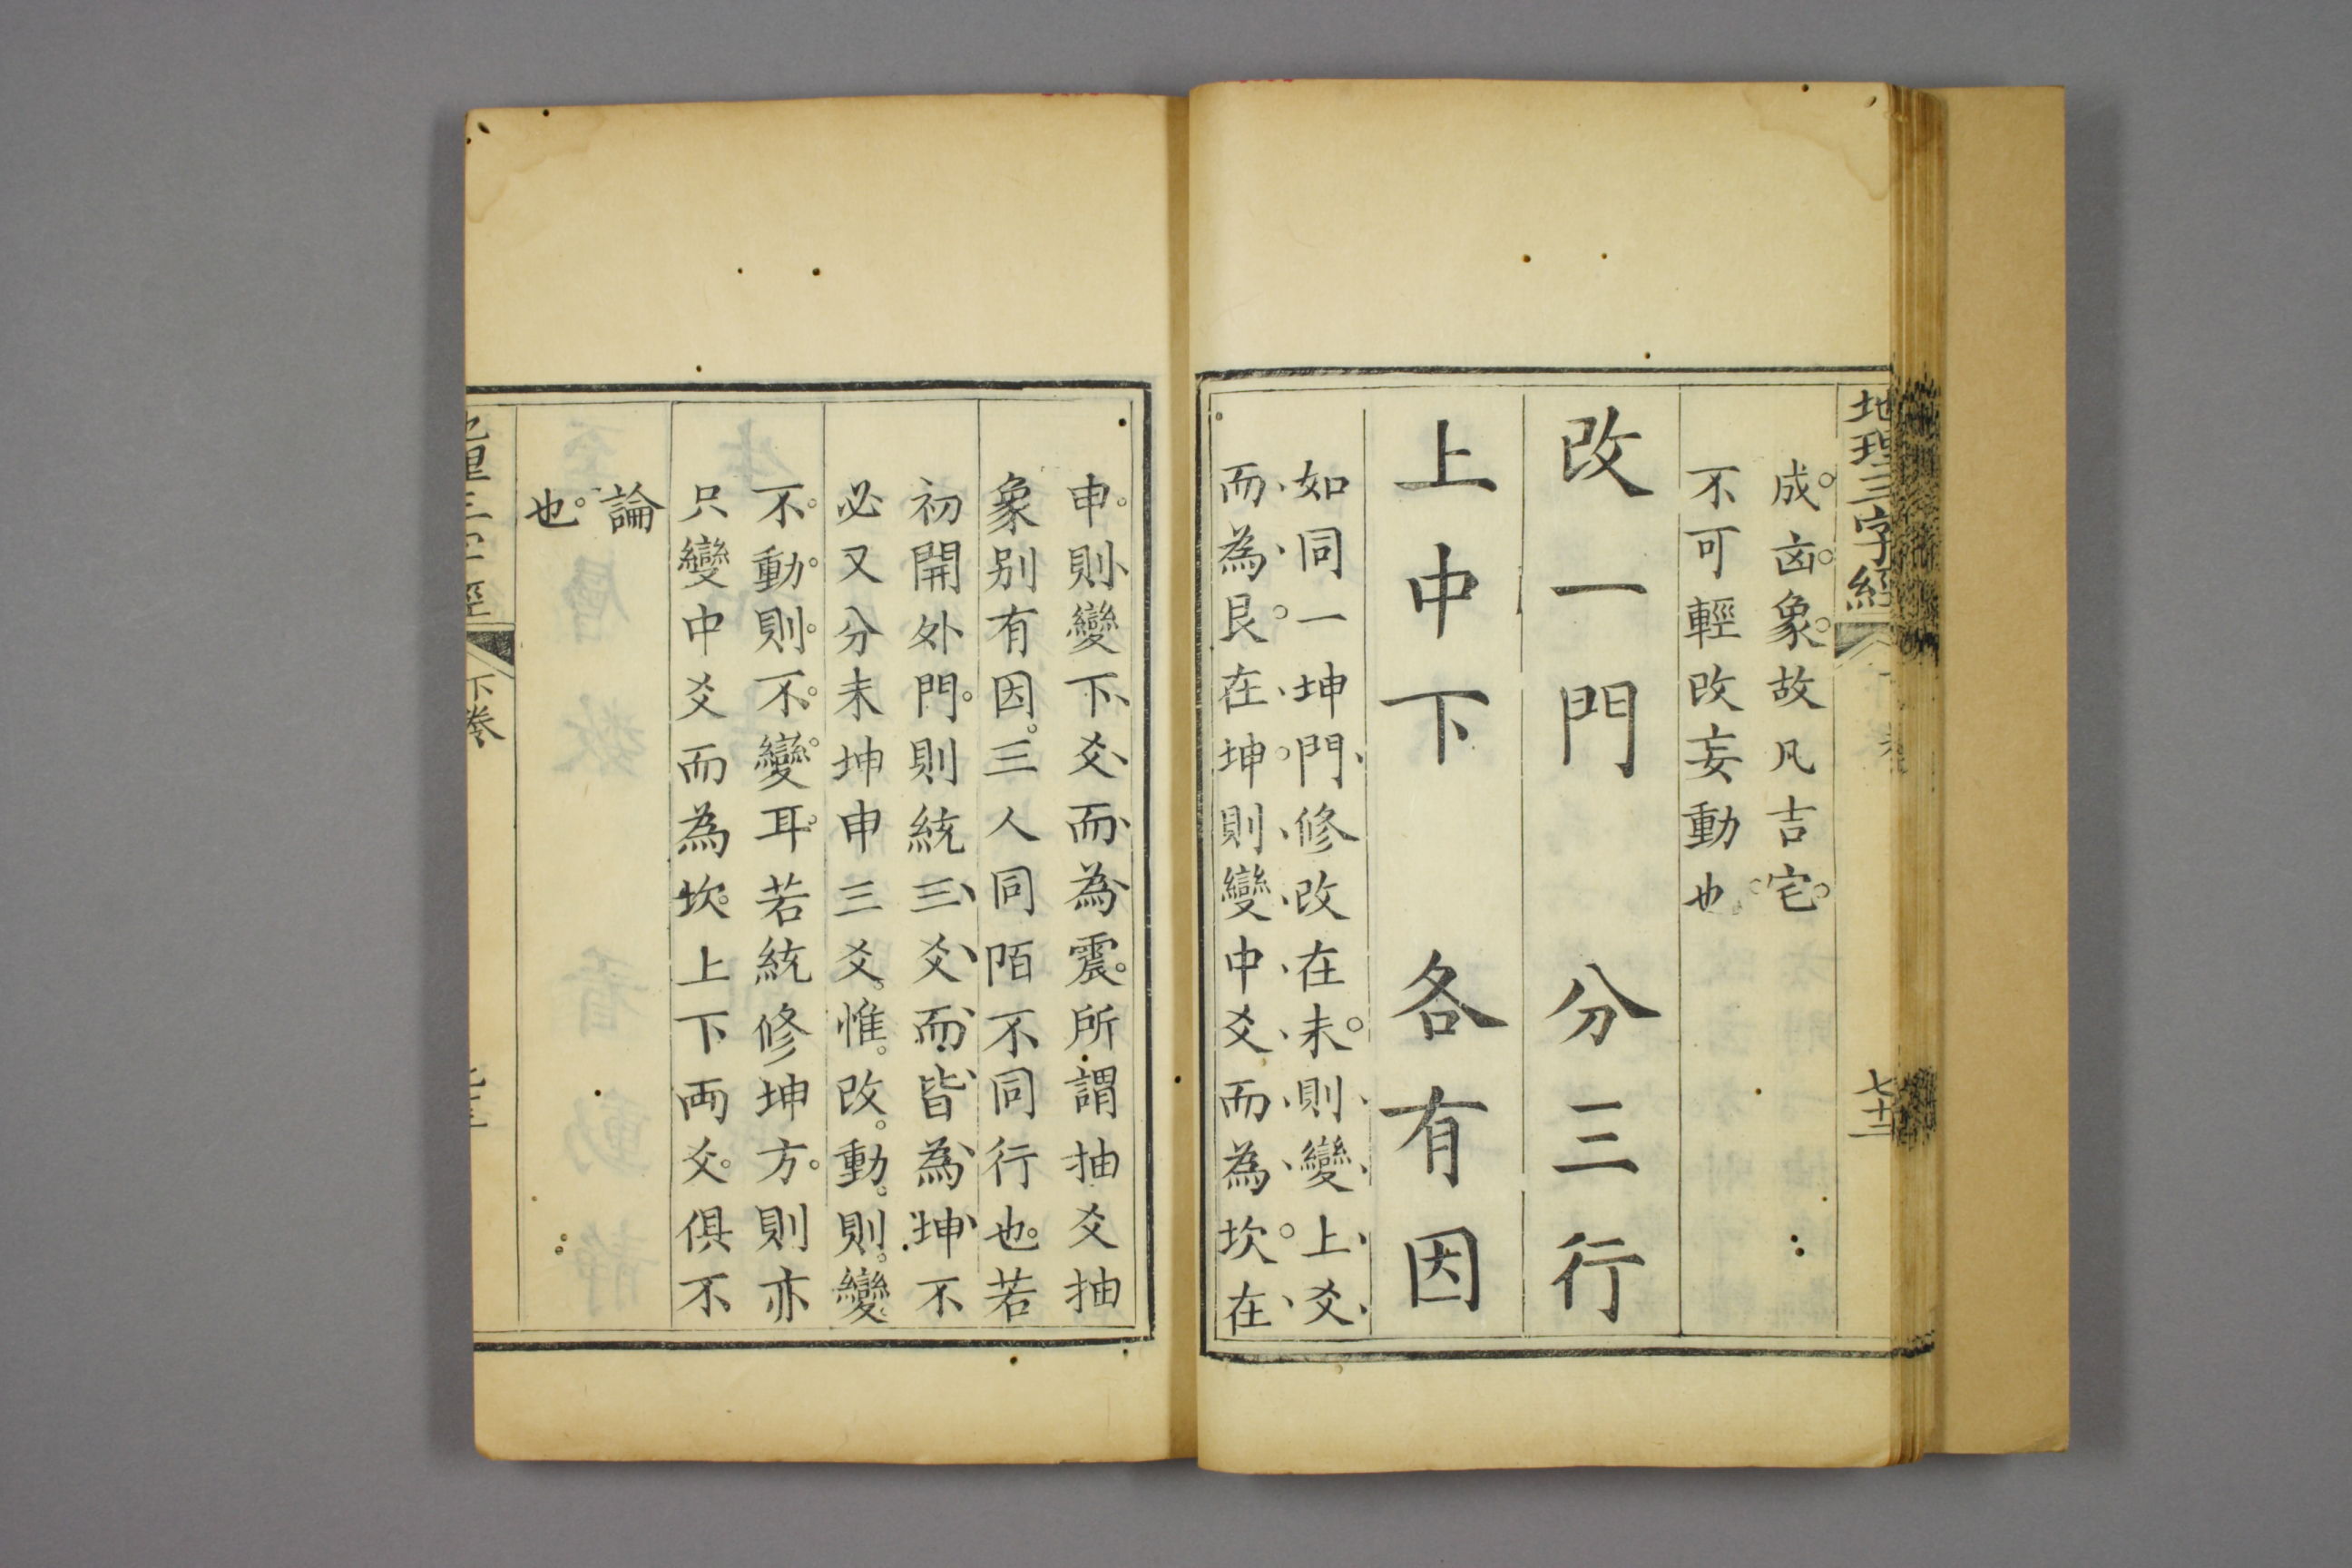 地理三字經
七十二
成凶象故凡吉宅
不可輕改妄動也
改一門 分三行
上中下 各有因
如同一坤門修改在未則變上爻
而為艮在坤則變中爻而為坎在
申則變下爻而為震所謂抽爻抽
象别有因三人同陌不同行也若
初開外門則統三爻而皆為坤不
必又分未坤申三爻惟改動則變
不動則不變耳若統修坤方則亦
只變中爻而為坎上下両爻俱不
論
也
下卷